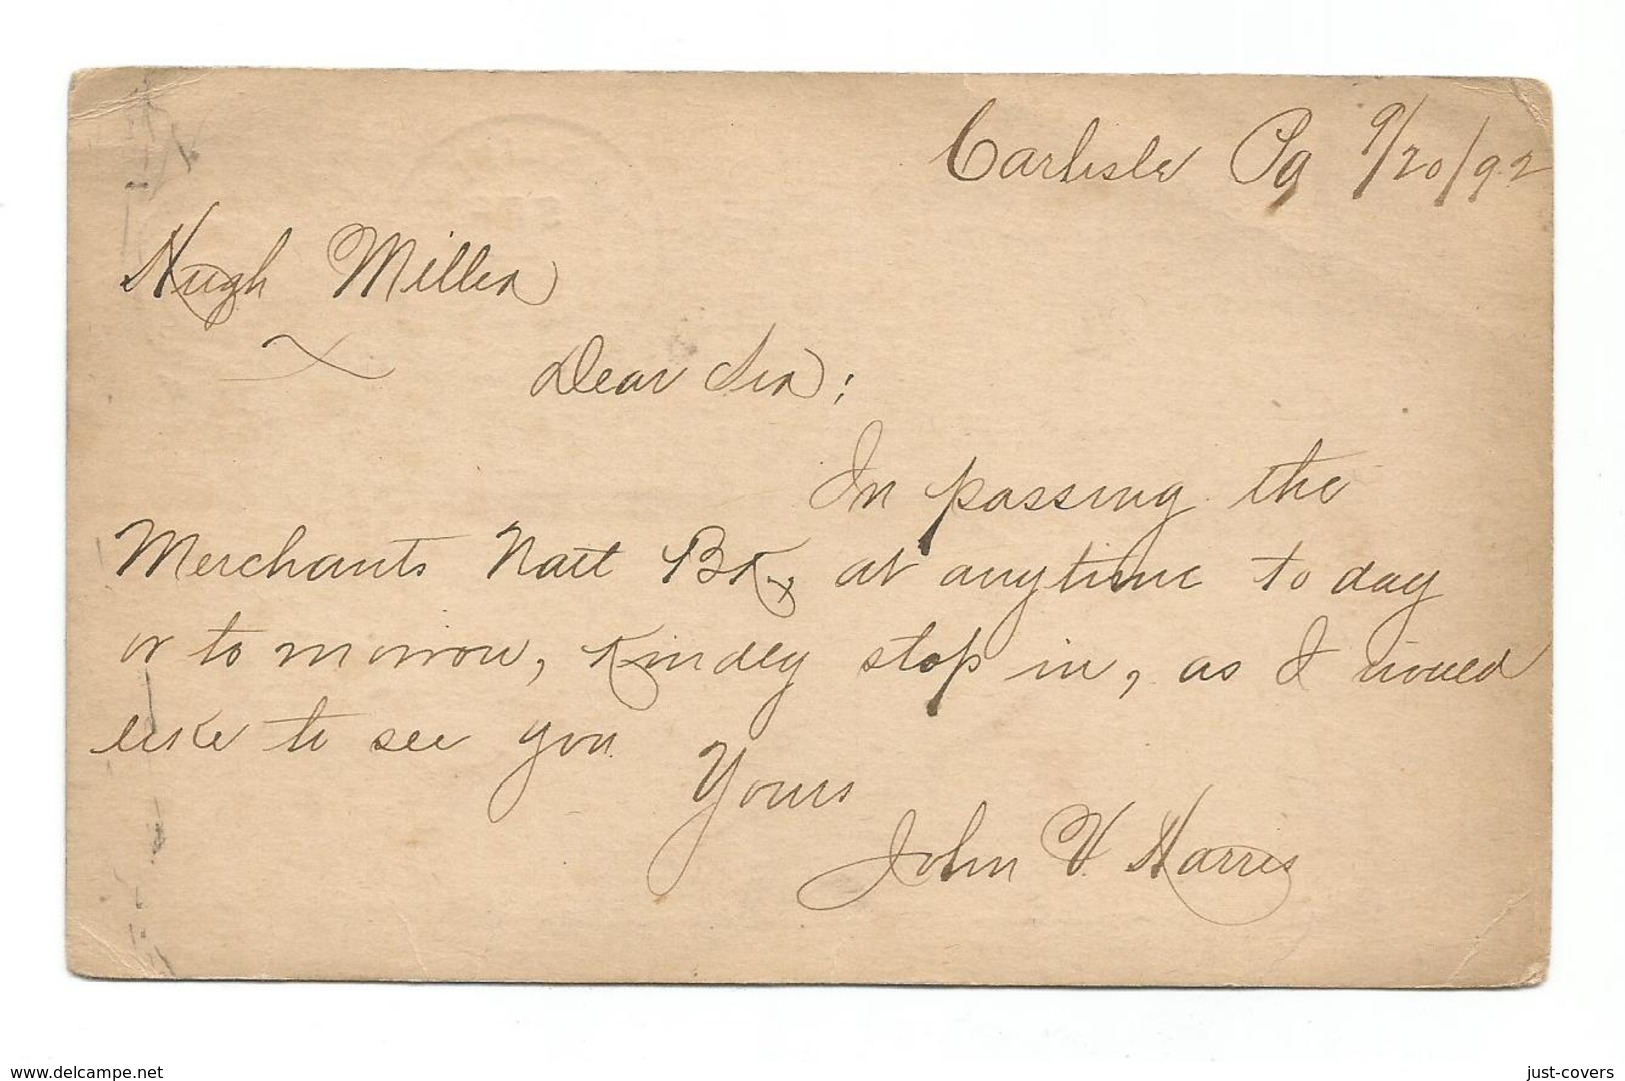 Carlisle Pa 9/20/92
Hugh Miller
Dear Sir;
In passing the
Merchants Natl Bk, at anytime to day
or to morrow, kindly stop in, as I would
like to see you
Yours
John V. Harris
www.delcampe.net
just-covers